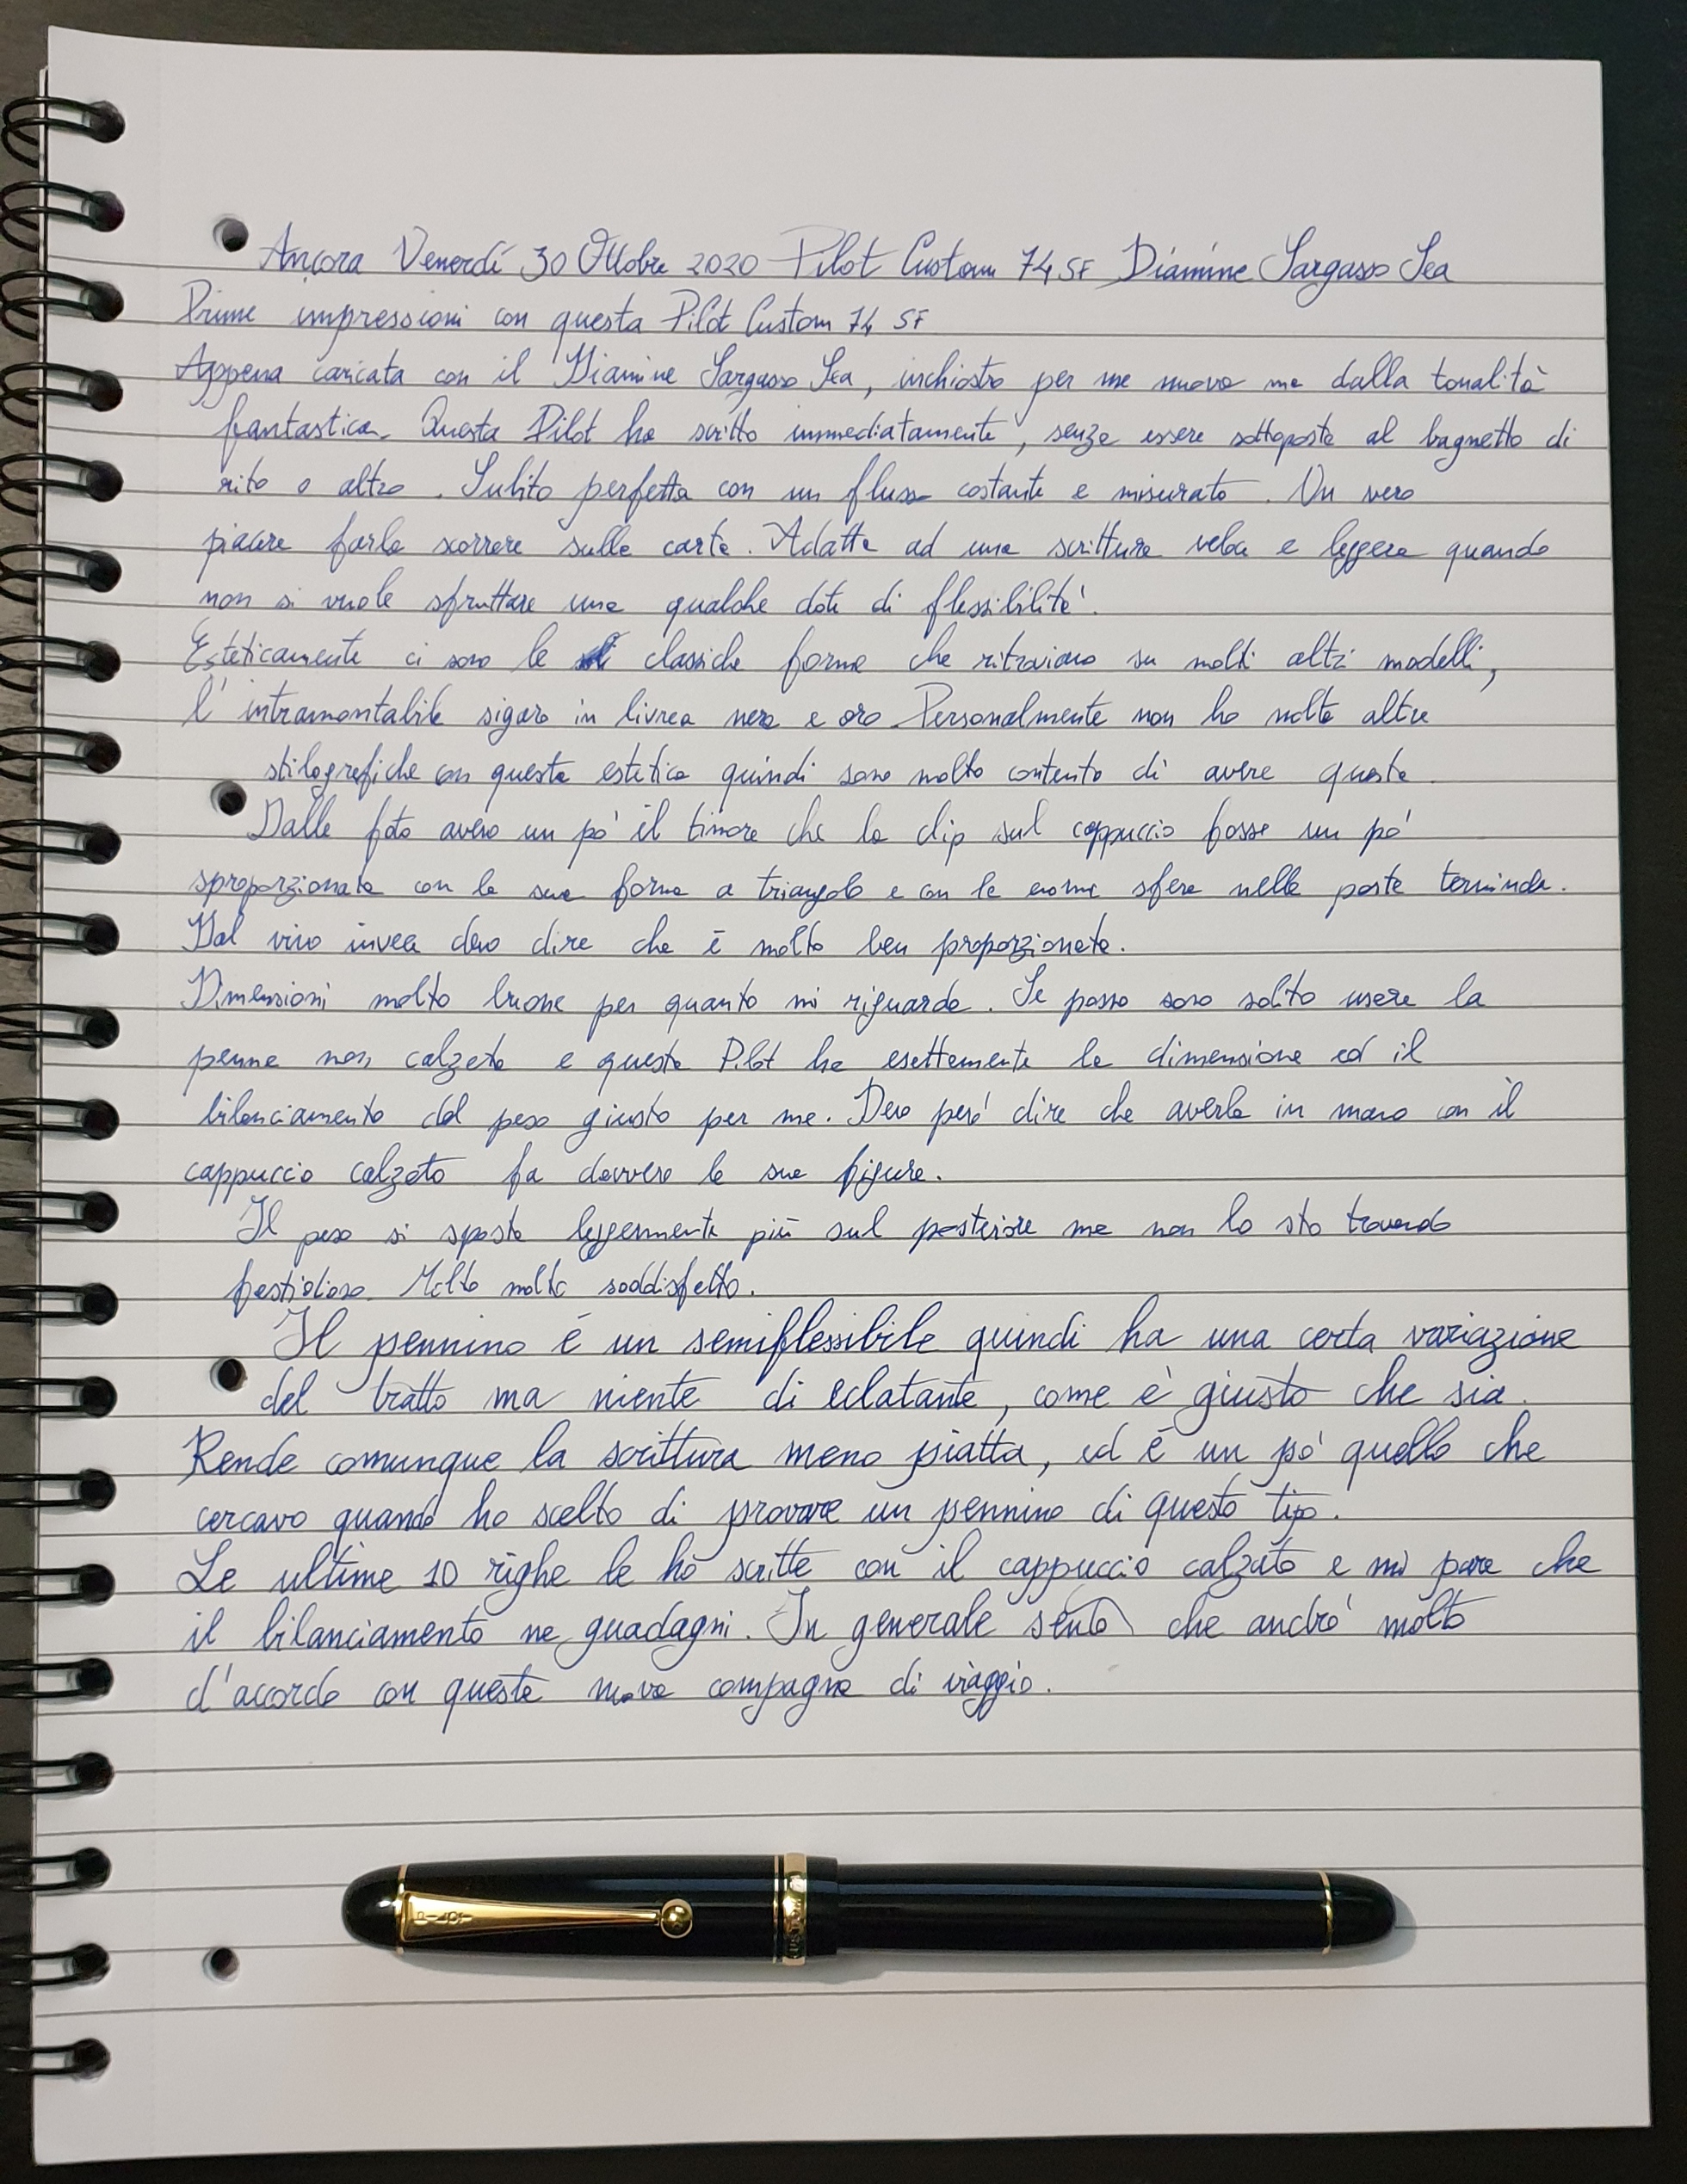 Ancora Venerdí 30 Ottobre 2020 Pilot Custom 74 SF Diamine Sargasso Sea
Prime impressioni con questa Pilot Custom 74 SF
Appena caricata con il Diamine Sargasso Sea, inchiostro per me nuovo ma dalla tonalità
fantastica. Questa Pilot ha scritto immediatamente, senza essere sottoposta al bagnetto di
rito o altro. Subito perfetta con un flusso costante e misurato. Un vero
piacere farla scorrere sulla carta. Adatta ad una scrittura veloce e leggera quando
non si vuole sfruttare una qualche dote di flessibilita'.
Esteticamente ci sono le classiche forme che ritroviamo su molti altri modelli,
l'intramontabile sigaro in livrea nera e oro. Personalmente non ho molte altre
stilografiche con questa estetica quindi sono molto contento di avere questa.
Dalle foto avevo un po' il timore che la clip sul cappuccio fosse un po'
sproporzionata con la sua forma a triangolo e con la enorme sfera nella parte terminale.
Dal vivo invece devo dire che è molto ben proporzionata.
Dimensioni molto buone per quanto mi riguarda. Se posso sono solito usare la
penna non calzata e questa Pilot ha esattamente la dimensione ed il
bilanciamento del peso giusto per me. Devo peró dire che averla in mano con il
cappuccio calzato fa davvero la sua figura.
Il peso si sposta leggermente più sul posteriore ma non lo sto trovando
fastidioso. Molto molto soddisfatto.
Il pennino é un semiflessibile quindi ha una certa variazione
del tratto ma niente di eclatante, come è giusto che sia.
Rende comunque la scrittura meno piatta, ed é un po' quello che
cercavo quando ho scelto di provare un pennino di questo tipo.
Le ultime 10 righe le ho scritte con il cappuccio calzato e mi pare che
il bilanciamento ne guadagni. In generale sento che andro' molto
d'accordo con questa nuova compagna di viaggio.
PILOT